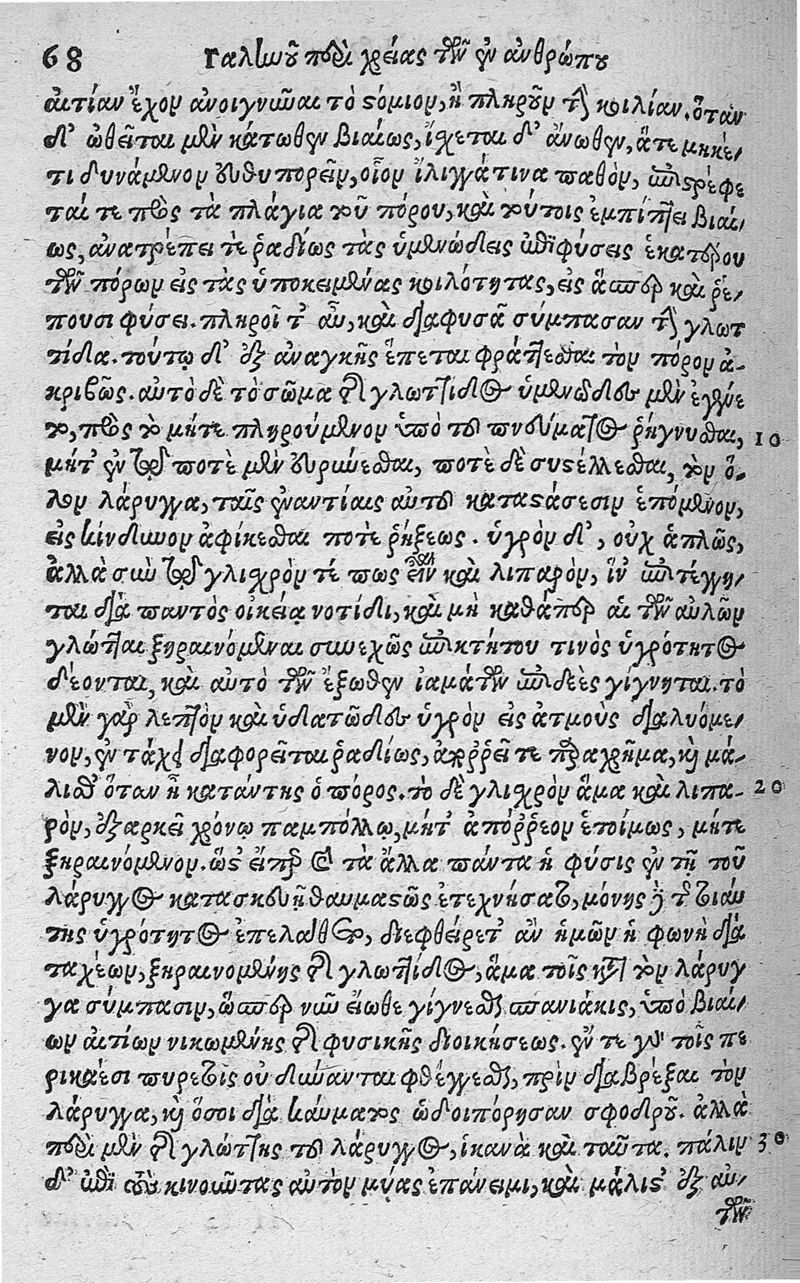 68 Γαληνοῦ περὶ χρείας τῶν ἐν ἀνθρώπου
αἰτίαν ἔχον ἀνοιγνῶναι τὸ στόμιον, ἢ πληροῦν τὴν κοιλίαν. ὅταν
δ' ὠθεῖται μὲν κάτωθεν βιαίως, ἴσχεται δ' ἄνωθεν, ἅτε μηκέ-
τι δυνάμενον εὐθυπορεῖν, οἷον ἴλιγγά τινα παθὸν, ἐπιστρέφε
ταί τε πρὸς τὰ πλάγια τοῦ πόρου, καὶ τούτοις ἐμπίπτει βιαί-
ως, ἀνατρέπει τε ῥαδίως τὰς ὑμενώδεις ἐπιφύσεις ἑκατέρου
τῶν πόρων εἰς τὰς ὑποκειμένας κοιλότητας, εἰς ἅσπερ καὶ ῥέ-
πουσι φύσει. πληροῖ τ' αὖ, καὶ διαφυσᾷ σύμπασαν τὴν γλωτ
τίδα. τούτῳ δ' ἐξ ἀναγκῆς ἕπεται φράττεσθαι τὸν πόρον ἀ-
κριβῶς. αὐτὸ δὲ τὸ σῶμα τῆς γλωττίδος ὑμενῶδες μὲν ἐγένε
το, πρὸς τὸ μήτε πληρούμενον ὑπὸ τοῦ πνεύματος ῥήγνυσθαι, 10
μήτ' ἐν τῷ ποτὲ μὲν εὐρύνεσθαι, ποτὲ δὲ συστέλλεσθαι, τὸν ὅ-
λον λάρυγγα, ταῖς ἐναντίαις αὐτοῦ καταστάσεσιν ἑπόμενον,
εἰς κίνδυνον ἀφίκεσθαι ποτὲ ῥήξεως. ὑγρὸν δ', οὐχ ἁπλῶς,
ἀλλὰ σὺν τῷ γλιχρὸν τέ πως εἶναι καὶ λιπαρὸν, ἵν' ἐπιτέγγη-
ται διὰ παντὸς οἰκείᾳ νοτίδι, καὶ μὴ καθάπερ αἱ τῶν αὐλῶν
γλῶτται ξηραινόμεναι συνεχῶς ἐπικτήτου τινὸς ὑγρότητος
δέονται, καὶ αὐτὸ τῶν ἔξωθεν ἰαμάτων ἐπιδεὲς γίγνηται. τὸ
μὲν γὰρ λεπτὸν καὶ ὑδατῶδες ὑγρὸν εἰς ἀτμοὺς διαλυόμε-
νον, ἐν τάχει διαφορεῖται ῥαδίως, ἀπορρεῖ τε παραχρῆμα, καὶ μά-
λισθ' ὅταν ᾖ κατάντης ὁ πόρος. τὸ δὲ γλιχρὸν ἅμα καὶ λιπα- 20
ρὸν, ἐξαρκεῖ χρόνῳ παμπόλλῳ, μήτ' ἀπόρρεον ἑτοίμως, μήτε
ξηραινόμενον. ὥστ' εἴπερ καὶ τὰ ἄλλα πάντα ἡ φύσις ἐν τῇ τοῦ
λάρυγγος κατασκευῇ θαυμαστῶς ἐτεχνήσατο, μόνης δὲ τῆς τοιαύ
της ὑγρότητος ἐπελάθετο, διεφθείρετ' ἂν ἡμῶν ἡ φωνὴ διὰ
ταχέων, ξηραινομένης τῆς γλωττίδος, ἅμα τοῖς κατὰ τὸν λάρυγ
γα σύμπασιν, ὥσπερ νῦν εἴωθε γίγνεσθαι σπανιάκις, ὑπὸ βιαί-
ων αἰτίων νικωμένης τῆς φυσικῆς διοικήσεως. ἔν τε γὰρ τοῖς πε
ρικαέσι πυρετοῖς οὐ δύνανται φθέγγεσθαι, πρὶν διαβρέξαι τὸν
λάρυγγα, καὶ ὅσοι διὰ καύματος ὡδοιπόρησαν σφοδροῦ. ἀλλὰ
περὶ μὲν τῆς γλώττης τοῦ λάρυγγος, ἱκανὰ καὶ ταῦτα. πάλιν 30
δ' ἐπὶ τοὺς κινοῦντας αὐτὸν μύας ἐπάνειμι, καὶ μάλιστ' ἐξ αὐ-
τῶν